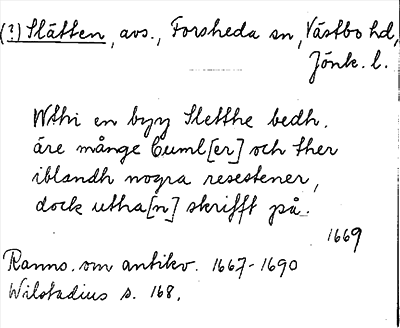 (?) Slätten, avs., Forsheda sn, Västbo hd,
Jönk. l.
Wthi en byy Sletthe bedh.
äre månge Cuml[er] och ther
iblandh nogra resestener,
dock utha[n] skrifft på.
1669
Ranns. om antikv. 1667-1690
Wilstadius s. 168.